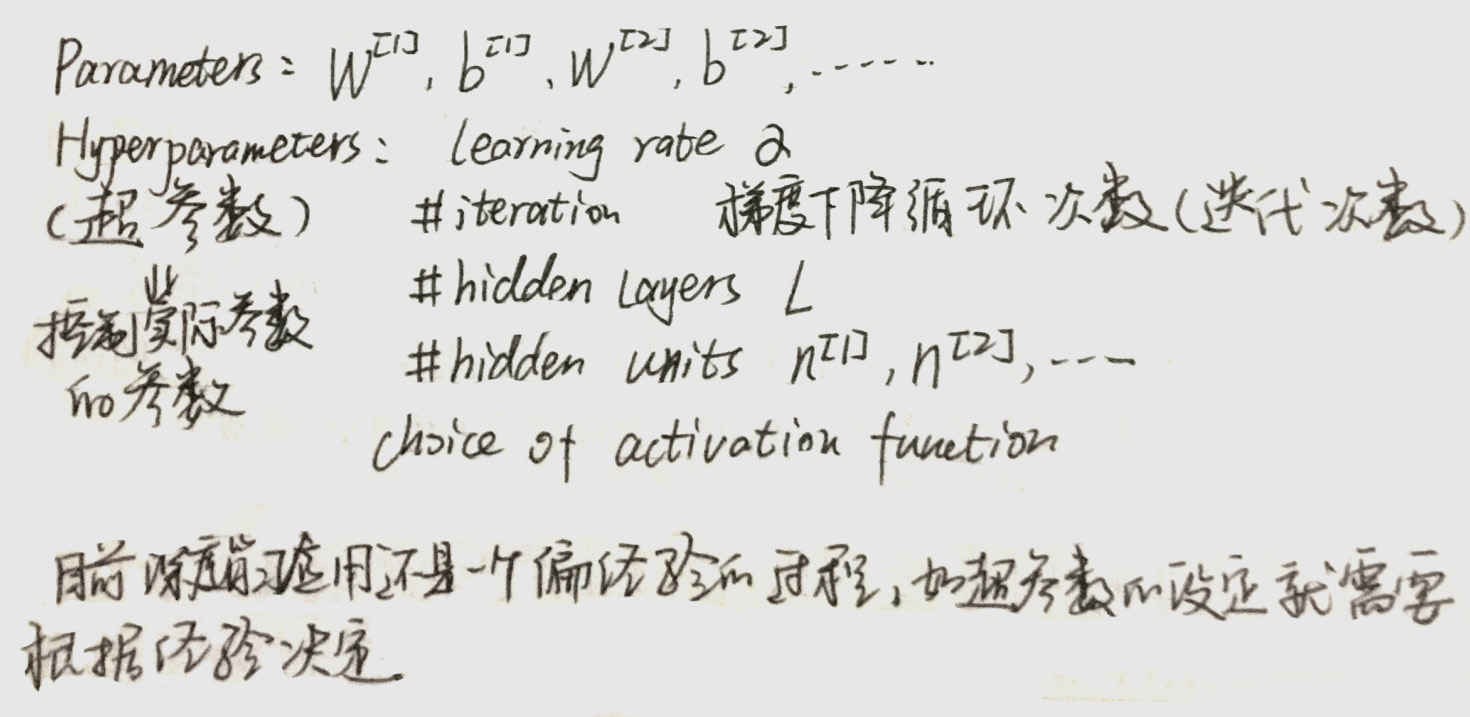 Parameters: W^[1], b^[1], W^[2], b^[2], ......
Hyperparameters: learning rate α
(超参数) #iteration 梯度下降循环次数(迭代次数)
⇓ #hidden layers L
控制实际参数 #hidden units n^[1], n^[2], ---
的参数
choice of activation function
目前深度学习应用还是一个偏经验的过程,如超参数的设定就需要
根据经验决定.